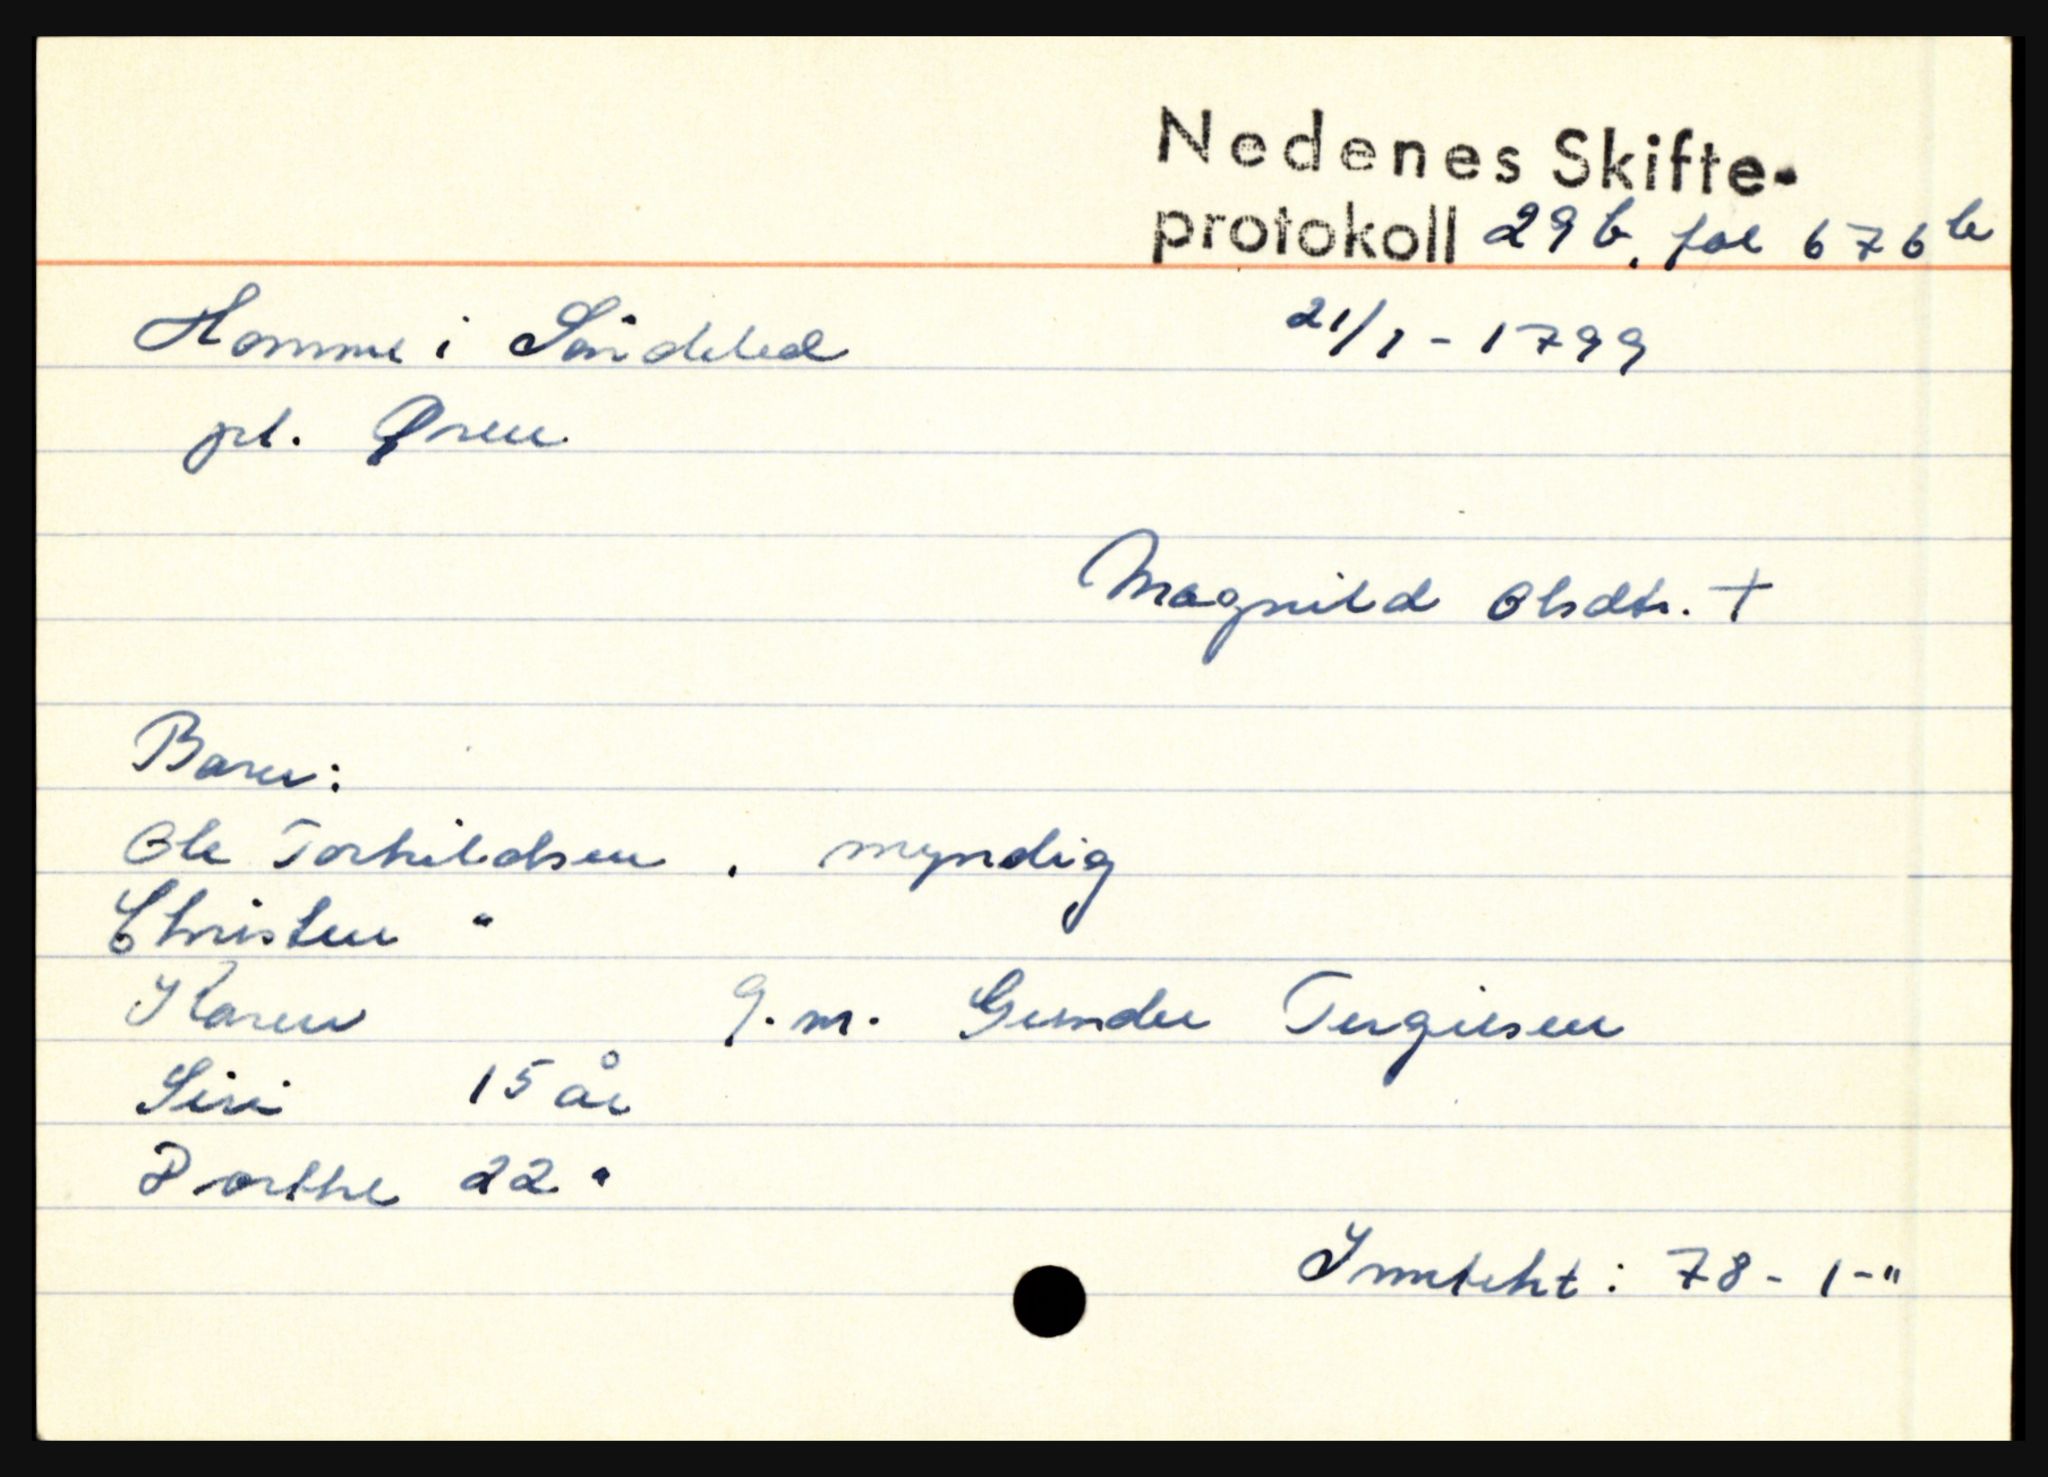 Nedenes Skifte-
protokoll 29b, fol 676b
Homme i Söndeled
21/1 - 1799
pl. Øren
Magnild Olsdtr. +
Barn:
Ole Torkildsen, myndig
Christen "
Karen g. m. Gunder Tergiesen
Siri 15 år
Dorthe 22 "
Inntekt: 78 - 1 - "